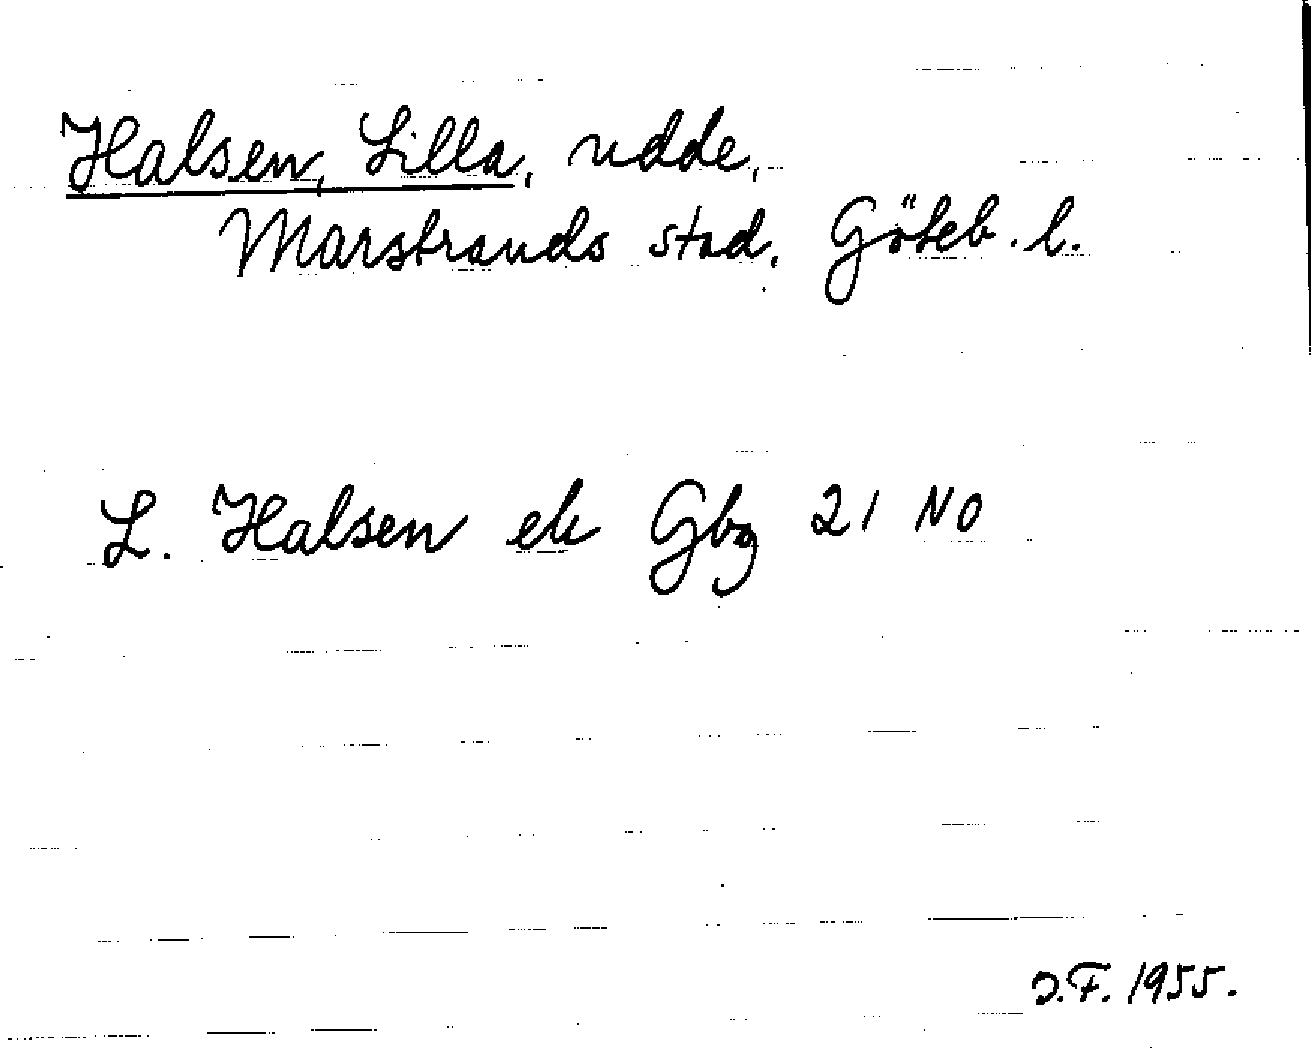 Halsen, Lilla, udde,
Marstrands stad, Göteb. l.
L. Halsen ek Gbg 21 NO
J.F. 1955.